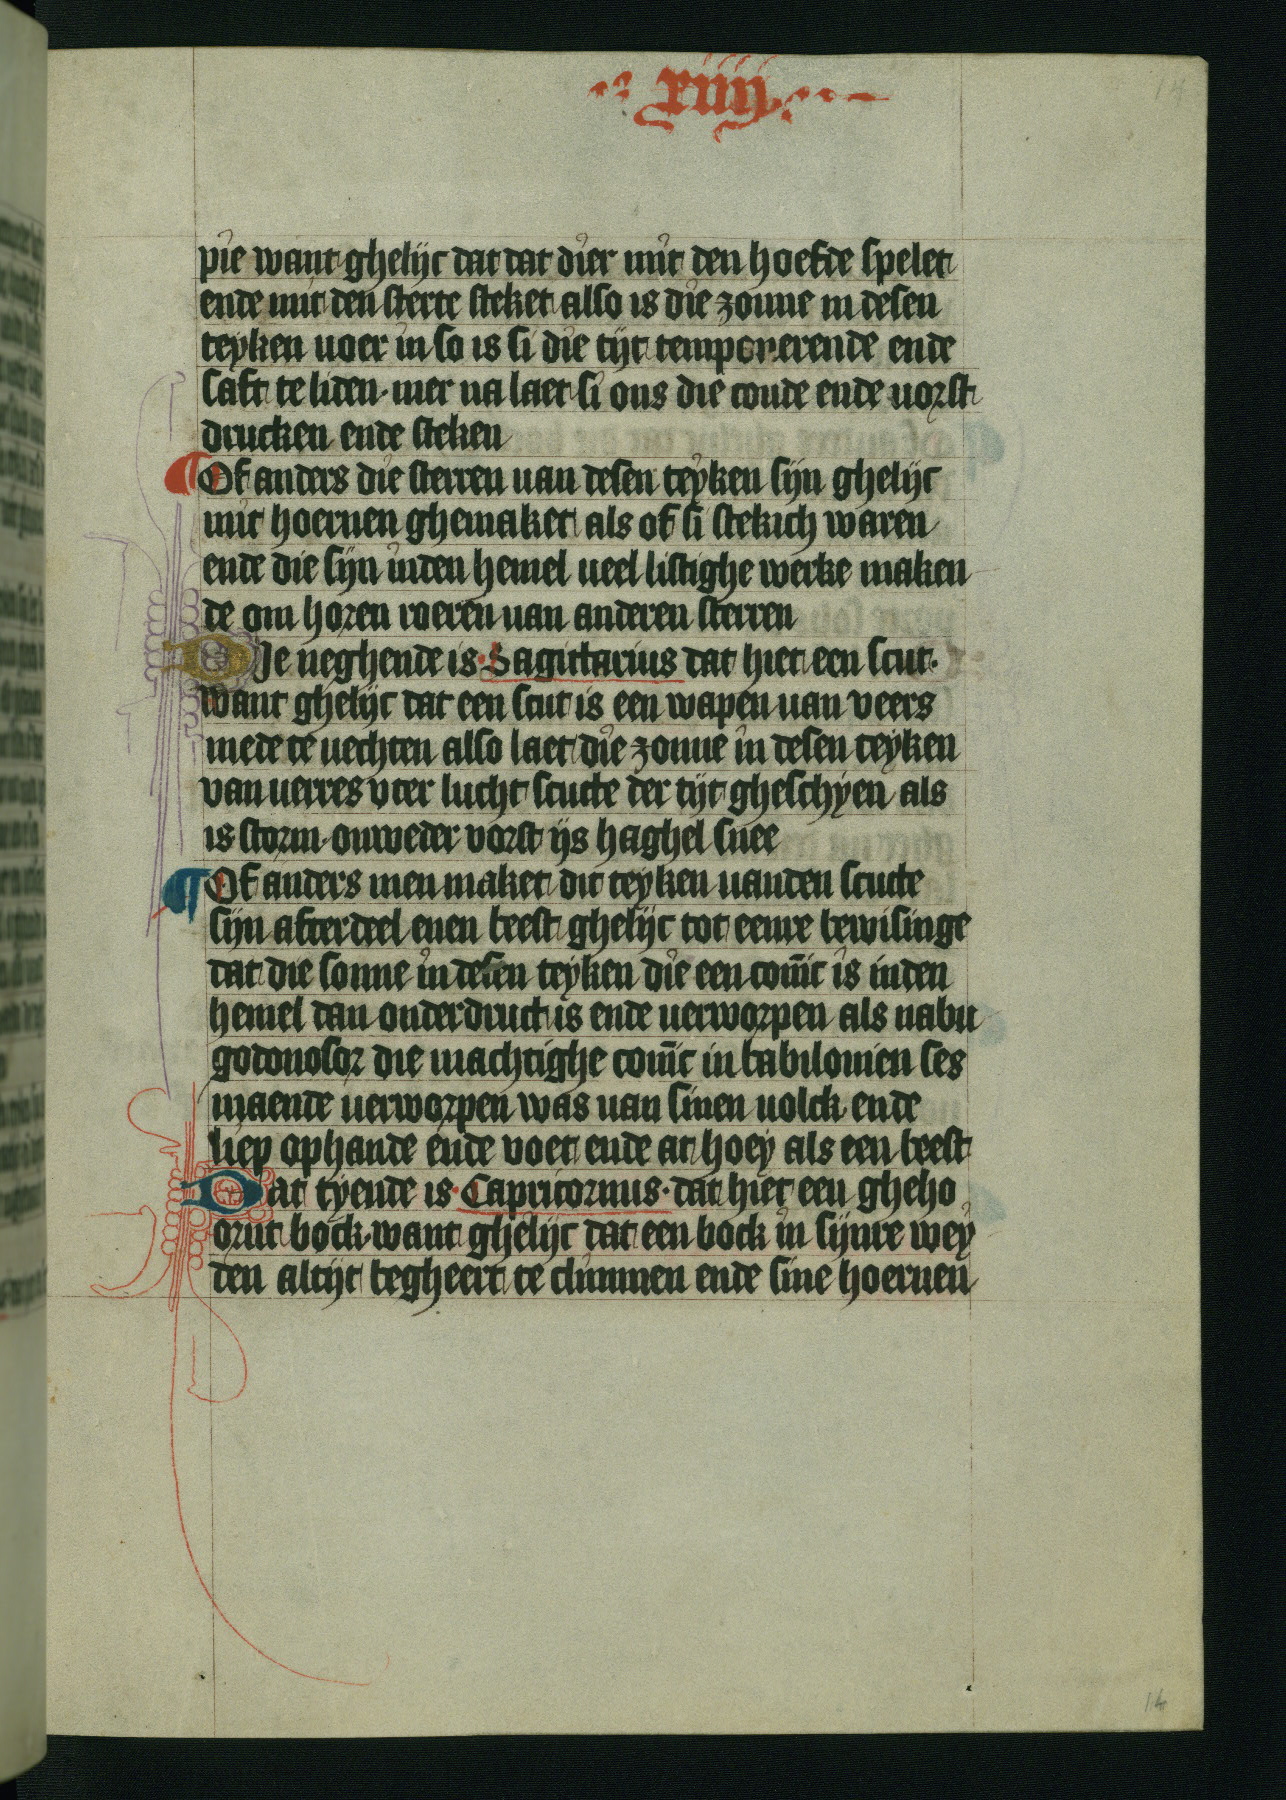 xiiij
14
pie want ghelijc dat dat dier mit den hoefde spelet
ende mit den sterte steket also is die zonne in desen
teyken voer in so is si die tijt temporerende ende
saft te liden · mer na laet si ons die coude ende vorst
drucken ende steken
¶ Of anders die sterren van desen teyken sijn ghelijc
mit hoernen ghemaket als of si stekich waren
ende die sijn inden hemel veel listighe werke maken
de om horen roeren van anderen sterren
DIe neghende is · Sagittarius dat hiet een scut ·
want ghelijc dat een scut is een wapen van veers
mede te vechten also laet die zonne in desen teyken
van verres vter lucht scutte der tijt gheschyen als
is storm · onweder vorst ijs haghel snee
¶ Of anders men maket dit teyken vanden scutte
sijn afterdeel enen beest ghelijc tot eenre bewisinge
dat die sonne in desen teyken die een conīc is inden
hemel dan onderdruct is ende verworpen als nabu
godonosor die machtighe conīc in babilonien ses
maende verworpen was van sinen volck ende
liep ophande ende voet ende at hoey als een beest
Dat tyende is · Capricornus · dat hiet een gheho
ornt bock · want ghelijc dat een bock in sijnre wey
den altijt begheert te climmen ende sine hoernen
14